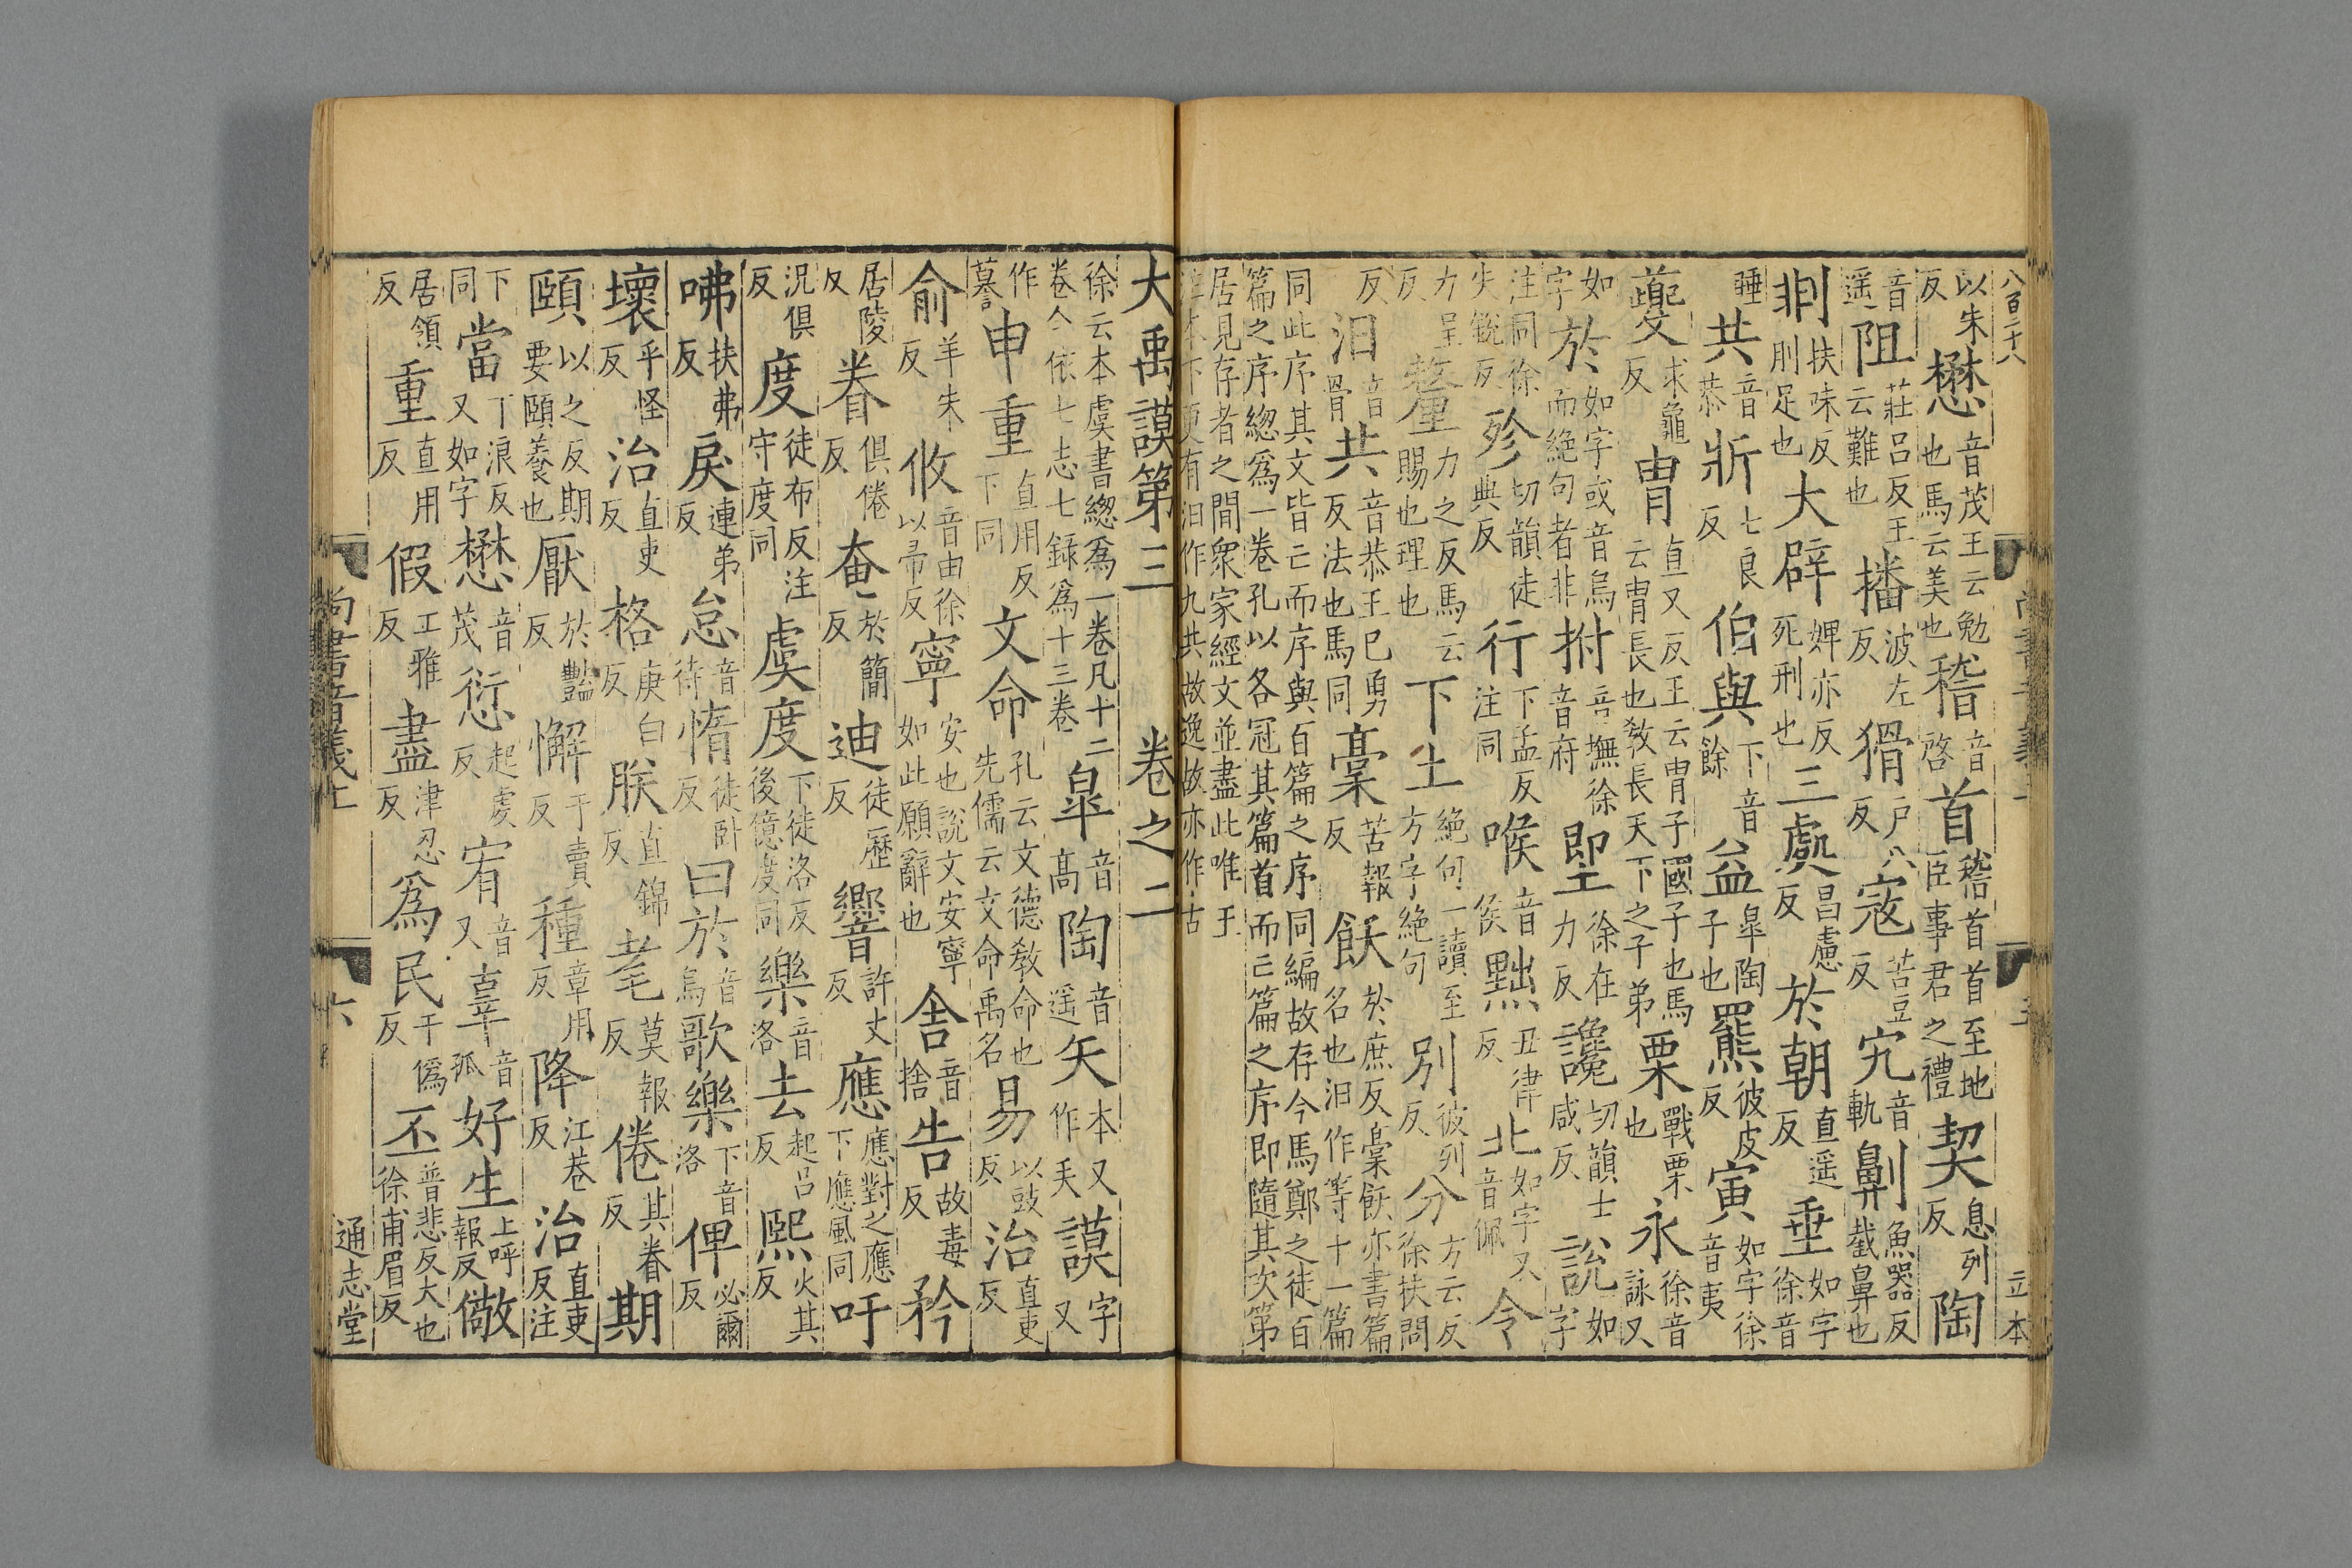 八百二十八　尚書音義上　五　立本
以朱反懋音茂王云勉也馬云美也稽音啓首稽首首至地臣事君之禮契息列反陶
音遥阻莊呂反王云難也播波左反猾戶八反寇苦豆反宄音軌劓魚器反截鼻也
剕扶味反刖足也大辟婢亦反死刑也三處昌慮反於朝直遥反垂如字徐音
睡共音恭斨七良反伯與下音餘益皐陶子也羆彼皮反寅如字徐音夷
夔求龜反胄直又反王云胄子國子也馬云胄長也教長天下之子弟栗戰栗也永徐音詠又
如字於如字或音烏而絶句者非拊音撫徐音府堲徐在力反讒切韻士咸反說如字
注同徐失銳反殄切韻徒典反行下孟反注同喉音侯黜丑律反北如字又音佩令
力呈反釐力之反馬云賜也理也下土絶句一讀至方字絶句別彼列反分方云反徐扶問
反汨音骨共音恭王已勇反法也馬同槀苦報反飫於庶反槀飫亦書篇名也汨作等十一篇
同此序其文皆亡而序與百篇之序同編故存今馬鄭之徒百篇之序總爲一卷孔以各冠其篇首而亡篇之序即隨其次第
居見存者之間衆家經文並盡此唯王注本下更有汨作九共故逸故亦作古
大禹謨第三　卷之二
徐云本虞書總爲一卷凡十二卷今依七志七録爲十三卷皐音高陶音遥矢本又作𠂕謨字又
作謩申重直用反下同文命孔云文德敎命也先儒云文命禹名易以豉反治直吏反
俞羊朱反攸音由徐以帚反寧安也說文安寧如此願辭也舍音捨告故毒反矜
居陵反眷俱倦反奄於簡反迪徒歷反響許丈反應應對之應下應風同吁
況俱反度徒布反注守度同虞度下徒洛反後億度同樂音洛去起呂反熙火其反
咈扶弗反戾連弟反怠音待惰徒卧反曰於音烏歌樂下音洛俾必爾反
壞乎怪反治直吏反格庚白反朕直錦反耄莫報反倦其眷反期
頤以之反期要頤養也厭於豔反懈于賣反種章用反降江巷反治直吏反注
下同當丁浪反又如字懋音茂愆起虔反宥音又辜音孤好生上呼報反儆
居領反重直用反假工雅反盡津忍反爲民于僞反丕普悲反大也徐甫眉反
尚書音義上　六　通志堂